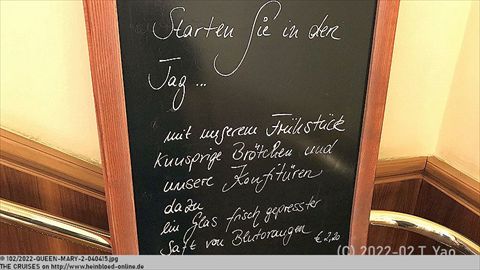 Starten Sie in den
Tag ...
mit unserem Frühstück
knusprige Brötchen und
unsere Konfitüren
dazu
ein Glas frisch gepresster
Saft von Blutorangen € 2,20
(C) 2022-02 T. Yao
© 102/2022-QUEEN-MARY-2-040415.jpg
THE CRUISES on http://www.heinbloed-online.de